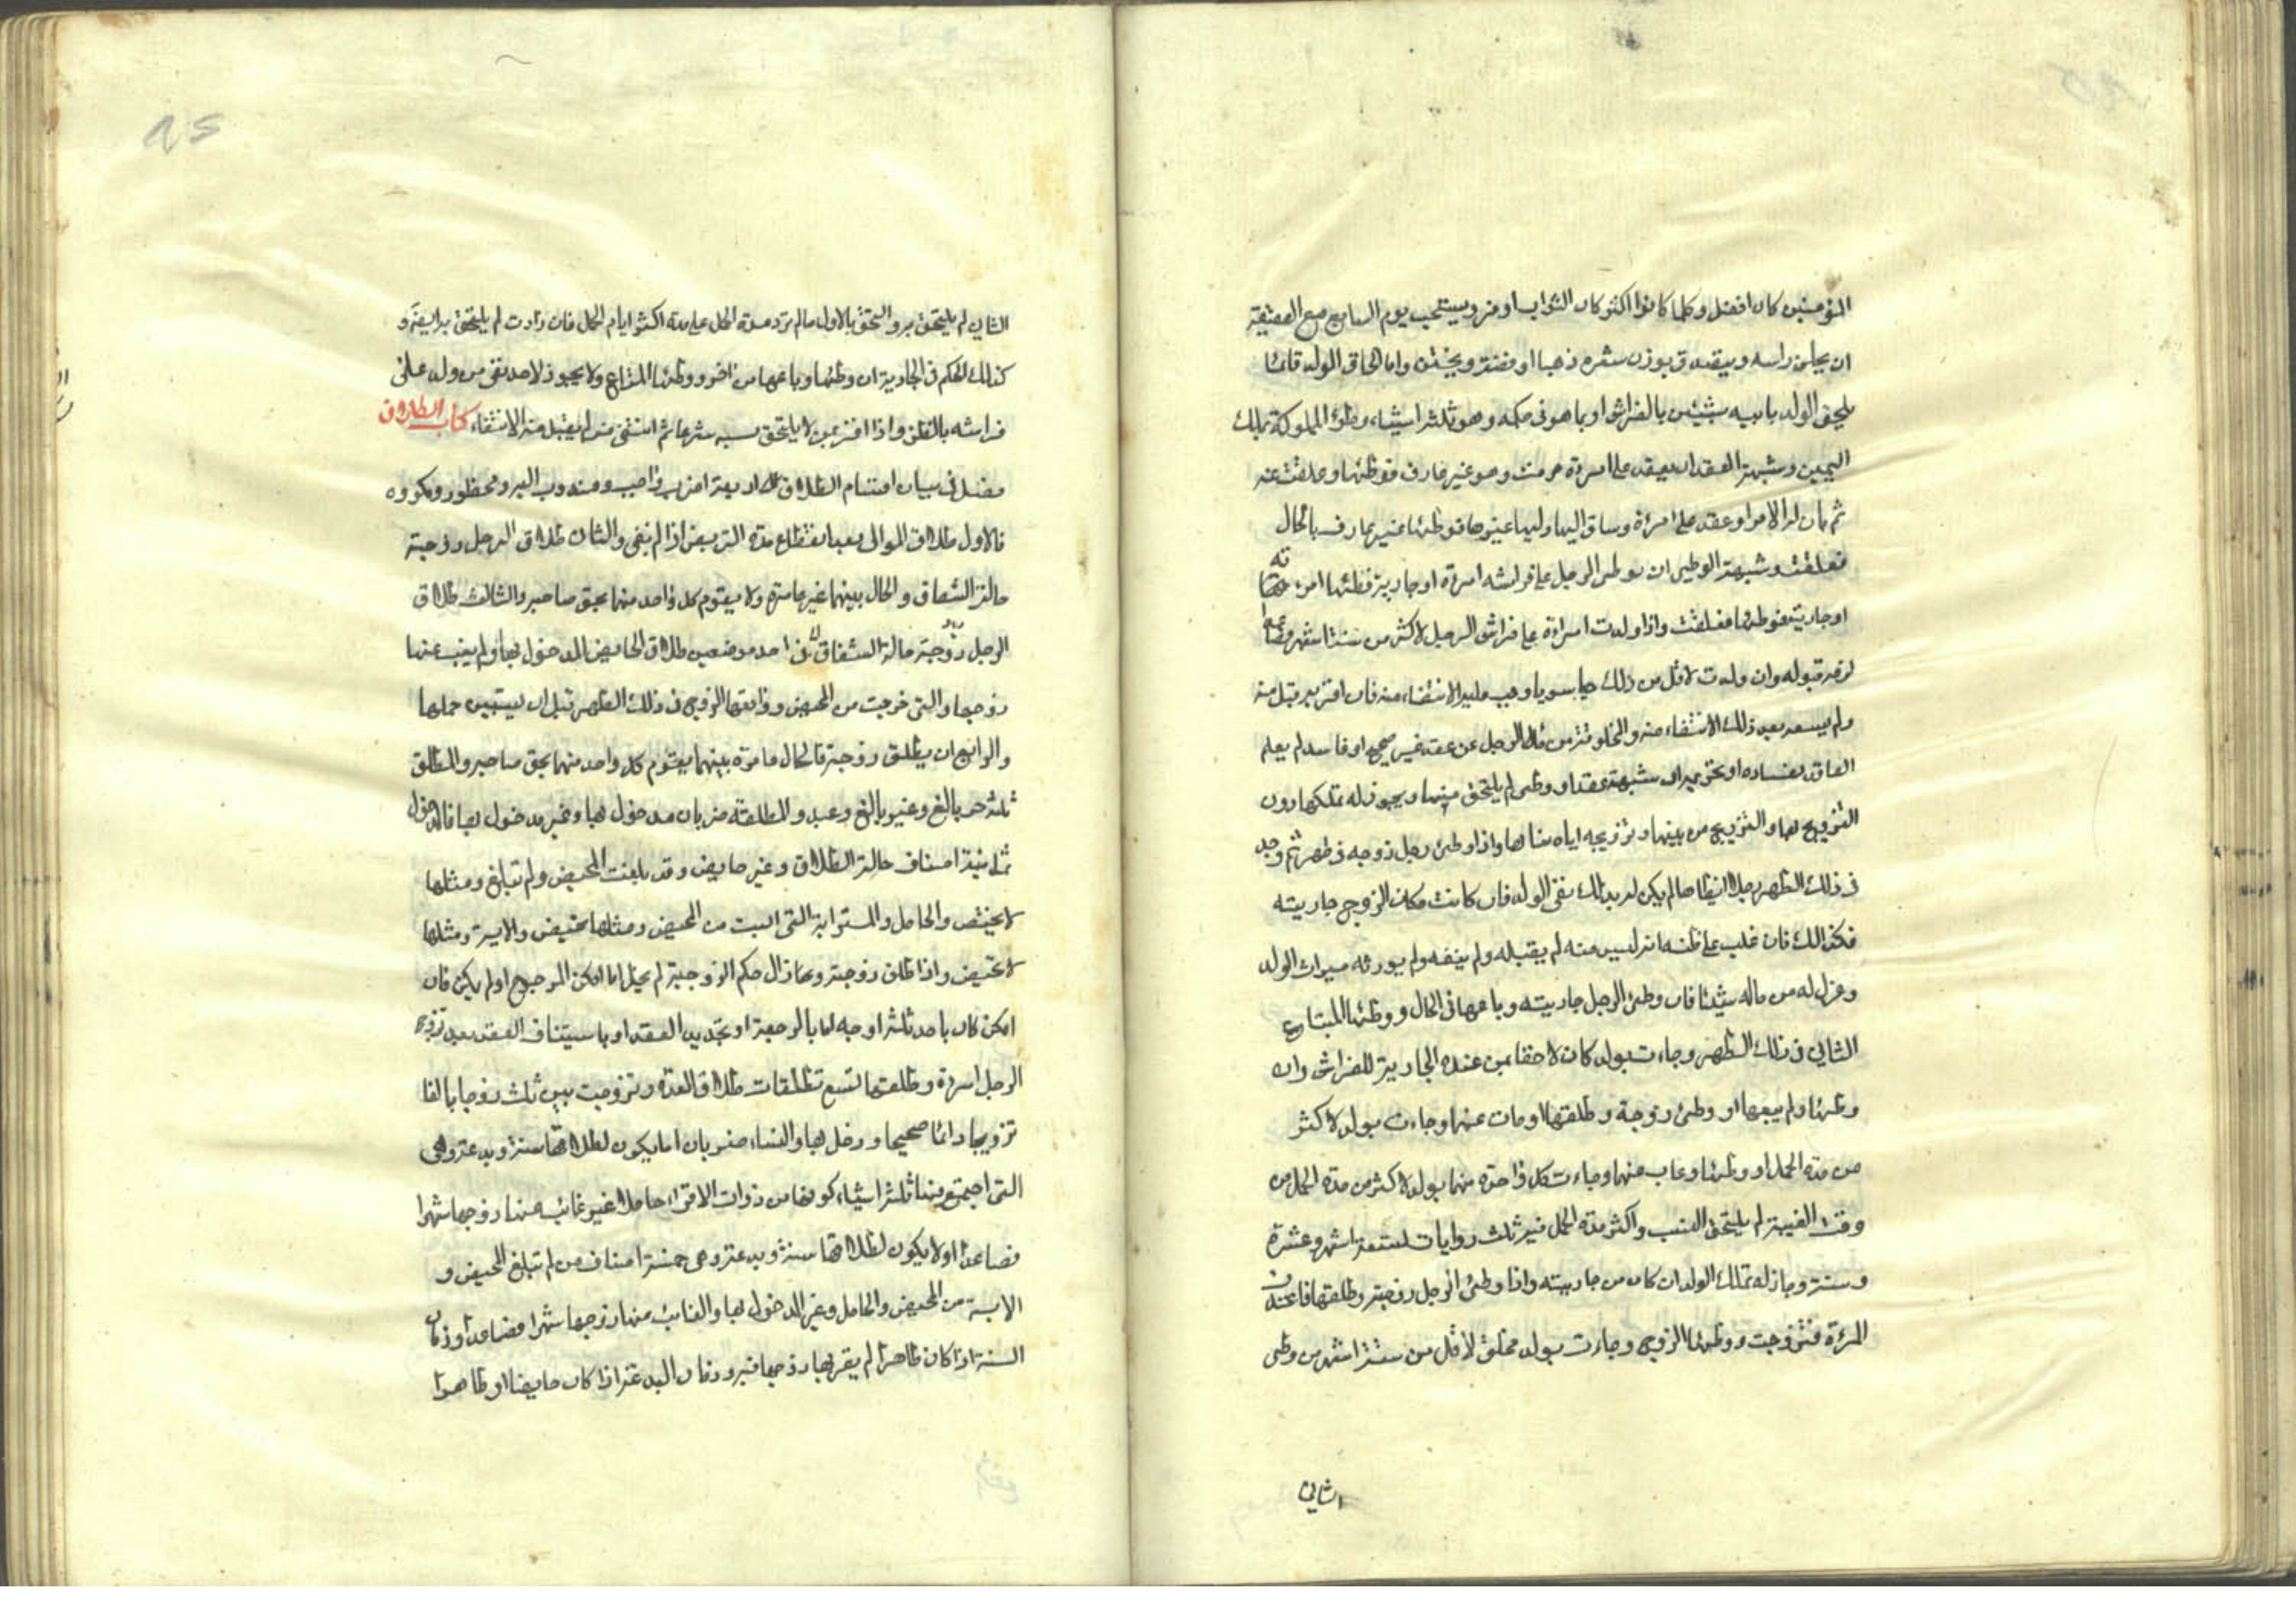 المؤمنين كان افضل وكلما كانوا اكثر كان الثواب اوفر ويستحب يوم السابع مع العقيقة
ان يحلق راسه ويتصدق بوزن شعره ذهبا او فضة ويختن واما الحاق الولد فانما
يلحق الولد بابيه بشيئين بالفراش او بما هو فى حكمه وهو ثلثة اشياء وطؤ المملوكة بملك
اليمين وشبهة العقد ان يعقد على امرءة حرمت وهو غير عارف فوطئها وعلقت عنه
ثم بان له الامر او عقد على امرءة وساق اليها وليها غيرها فوطئها غير عارف بالحال
فعلقت وشبهة الوطى ان يوطى الرجل على فراشه امرءة او جارية فظنها امرءته
او جاريته فوطئها فعلقت واذا ولدت امرءة على فراش الرجل لاكثر من ستة اشهر فصاعدا
لزمه قبوله وان ولدت لاقل من ذلك حيا سويا وجب عليه الانتفاء منه فان اقر به قبل منه
ولم يسعه بعد ذلك الانتفاء منه والمخلوقة من ماء الرجل عن عقد غير صحيح او فاسد لم يعلم
العاقد بفساده او عن غير شبهة عقد او وطى لم يلتحق منها ويجوز له تملكها دون
التزويج بها والتزويج من بينها وتزويجه اياه بناتها واذا وطئ رجل زوجه فى طهر ثم وجد
فى ذلك الطهر رجلا ايضا معها لم يكن له بذلك نفى الولد فان كانت مكان الزوج جاريته
فكذالك فان غلب على ظنه انه ليس منه لم يقبله ولم ينفه ولم يورثه ميراث الولد
وعزل له من ماله شيئا فان وطئ الرجل جاريته وباعها فى الحال ووطئها المبتاع
الثانى فى ذلك الطهر وجاءت بولد كان لاحقا بمن عنده الجارية للفراش وان
وطئها ولم يبعها او وطئ زوجة وطلقها او مات عنها وجاءت بولد لاكثر
من مدة الحمل او وطئها وغاب عنها وجاءت كل واحدة منهما بولد لاكثر من مدة الحمل من
وقت الغيبة لم يلتحق النسب واكثر مدة الحمل فيه ثلث روايات تسعة اشهر وعشرة
وسنة وجاز له تملك الولد ان كان من جاريته واذا وطئ الرجل زوجته وطلقها فاعتدت
المرءة فتزوجت ووطئها الزوج وجاءت بولد مخلق لاقل من ستة اشهر من وطى
الثانى
٩٥
الثانى لم يلتحق به والتحق بالاول ما لم تزد مدة الحمل على مدة اكثر ايام الحمل فان زادت لم يلتحق به ايضا و
كذلك الحكم فى الجارية ان وطئها وباعها من اخر ووطئها المبتاع ولا يجوز لاحد نفى من ولد على
فراشه بالظن واذا اقر بمن لا يلتحق نسبه شرعا ثم انتفى منه لم يقبل منه الانتفاء كتاب الطلاق
فصل فى بيان اقسام الطلاق الطلاق اربعة اضرب واجب ومندوب اليه ومحظور ومكروه
فالاول طلاق الموالى بعد انقطاع مدة التربص اذا لم يفئ والثانى طلاق الرجل زوجته
حالة الشقاق والحال بينهما غير عامرة ولا يقوم كل واحد منهما بحق صاحبه والثالث طلاق
الرجل زوجته حالة الشقاق فى احد موضعين طلاق الحايض المدخول بها ولم يغب عنها
زوجها والتى خرجت من المحيض وواقعها الزوج فى ذلك الطهر قبل ان يستبين حملها
والرابع ان يطلق زوجته فالحال عامرة بينهما يقوم كل واحد منهما بحق صاحبه والمطلق
ثلثة حر بالغ وغير بالغ وعبد والمطلقة ضربان مدخول بها وغير مدخول بها فالمدخول
ثمانية اصناف حالة الطلاق وغير حايض وقد بلغت المحيض ولم تبلغ ومثلها
لا تحيض والحامل والمسترابة التى ايست من المحيض ومثلها تحيض والايسة ومثلها
لا تحيض واذا طلق زوجته وعاد زال حكم الزوجية لم يخل اما امكن الرجوع او لم يكن فان
امكن كان باحد ثلثة اوجه اما بالرجعة او تجديد العقد او باستيناف العقد بعد تزوج
الرجل امرءة وطلقها تسع تطليقات طلاق العدة وتزوجت بين ثلث زوجا بالغا
تزويجا دائما صحيحا ودخل بها والنساء ضربان اما يكون لطلاقها سنة وبدعة وهى
التى اجتمع فيها ثلثة اشياء كونها من ذوات الاقراء حاملا غير غائب عنها زوجها شهرا
فصاعدا او لا يكون لطلاقها سنة وبدعة وهى خمسة اصناف من لم تبلغ المحيض و
الايسة من المحيض والحامل وغير المدخول بها والغائب عنها زوجها شهرا فصاعدا وزمان
السنة اذا كان طاهرا لم يقربها زوجها فيه وزمان البدعة اذا كان حايضا او طاهرا